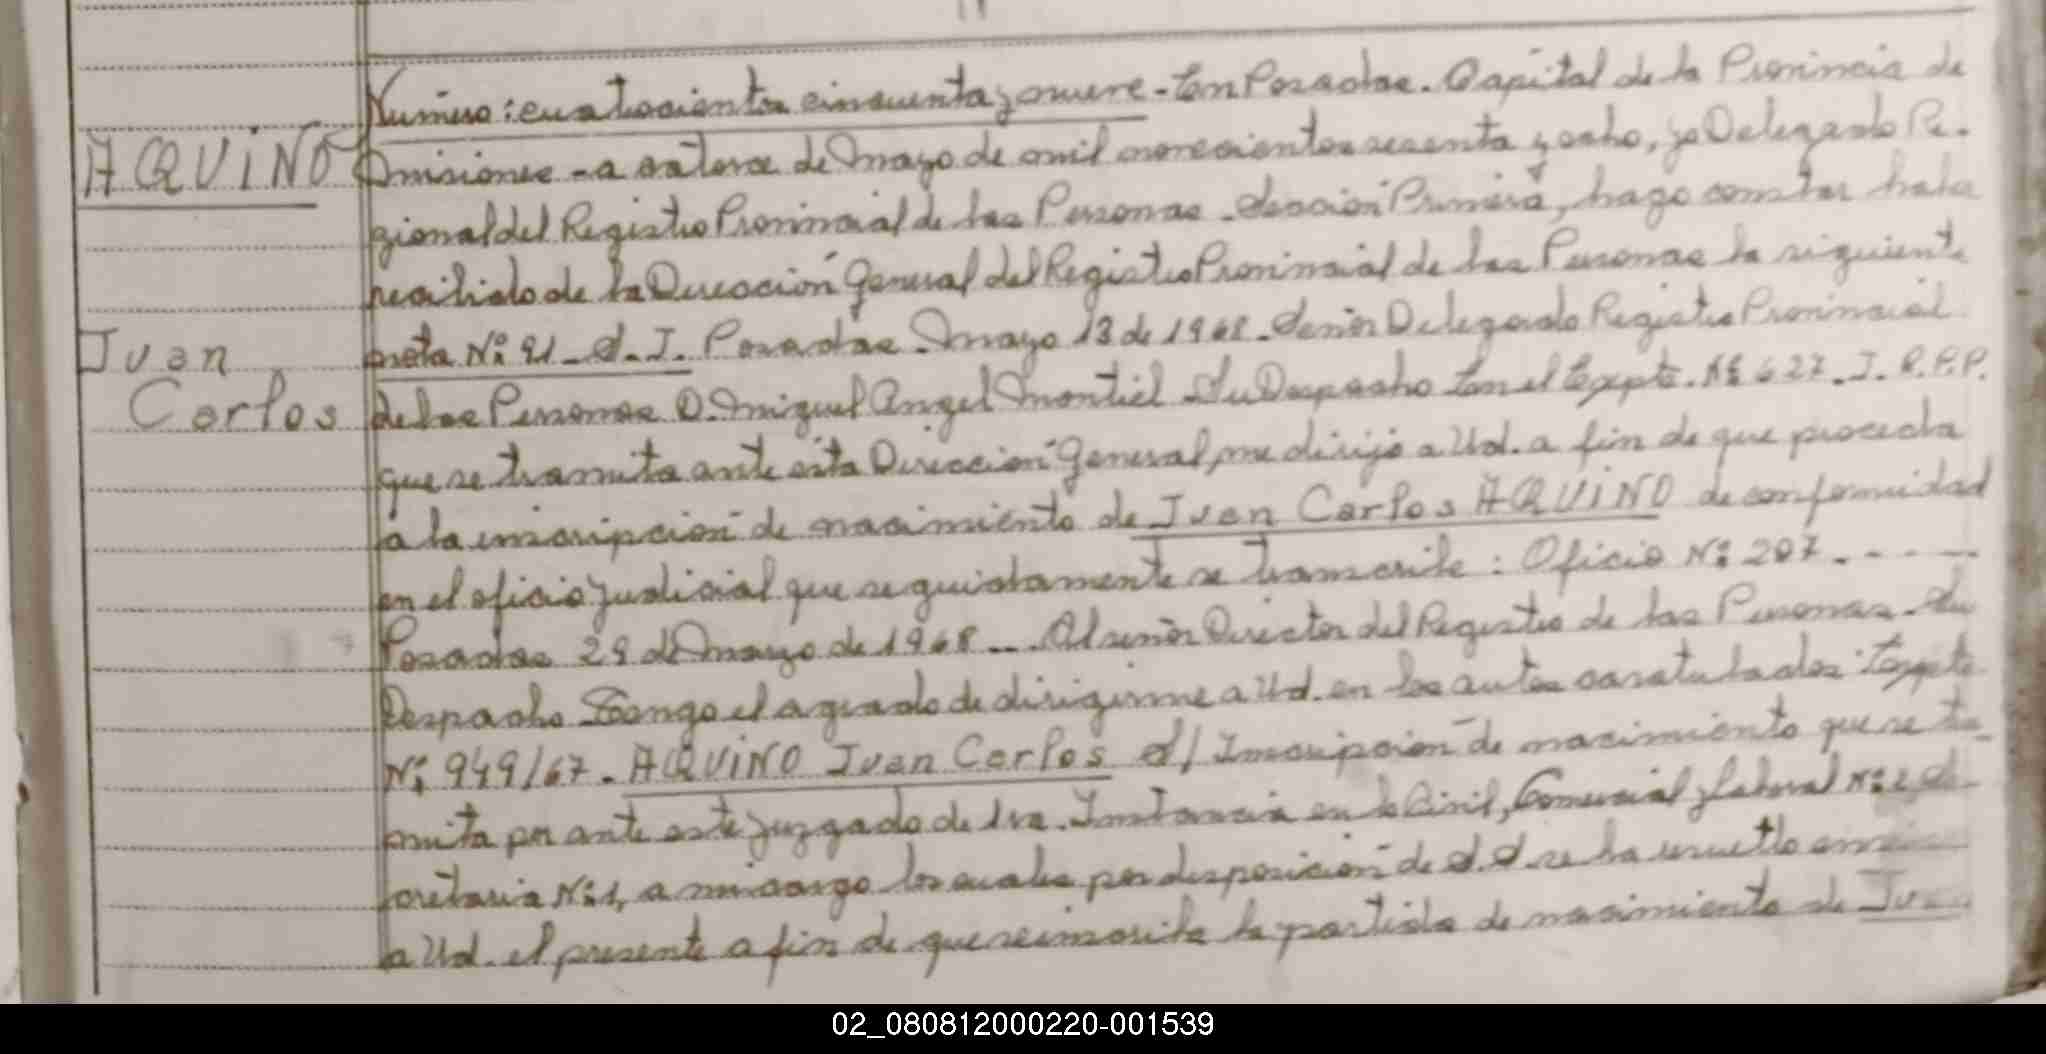 Número: cuatrocientos cincuenta y nueve - En Posadas. Capital de la Provincia de
AQUINO
Misiones - a catorce de Mayo de mil novecientos sesenta y ocho, yo Delegado Re-
gional del Registro Provincial de las Personas - Sección Primera, hago constar haber
recibido de la Dirección General del Registro Provincial de las Personas la siguiente
Juan
nota Nº 91 - S. I. Posadas - Mayo 13 de 1968 - Señor Delegado Registro Provincial
Carlos
de las Personas D. Miguel Angel Montiel - Su Despacho En el Expte. Nº 627 - I. R.P.P.
que se tramita ante esta Dirección General, me dirijo a Ud. a fin de que proceda
a la inscripción de nacimiento de Juan Carlos AQUINO de conformidad
en el oficio judicial que seguidamente se transcribe: Oficio Nº 207 - - - -
Posadas 29 de Mayo de 1968 - - Al señor Director del Registro de las Personas - Su
Despacho Tengo el agrado de dirigirme a Ud. en los autos caratulados: Expte
Nº 949/67 - AQUINO Juan Carlos S/ Inscripción de nacimiento que se tra-
mita por ante este Juzgado de 1ra. Instancia en lo Civil, Comercial y Laboral Nº 2 Se-
cretaria Nº 1, a mi cargo los cuales por disposición de S.S. se ha resuelto
a Ud. el presente a fin de que se inscriba la partida de nacimiento de Juan
02_080812000220-001539